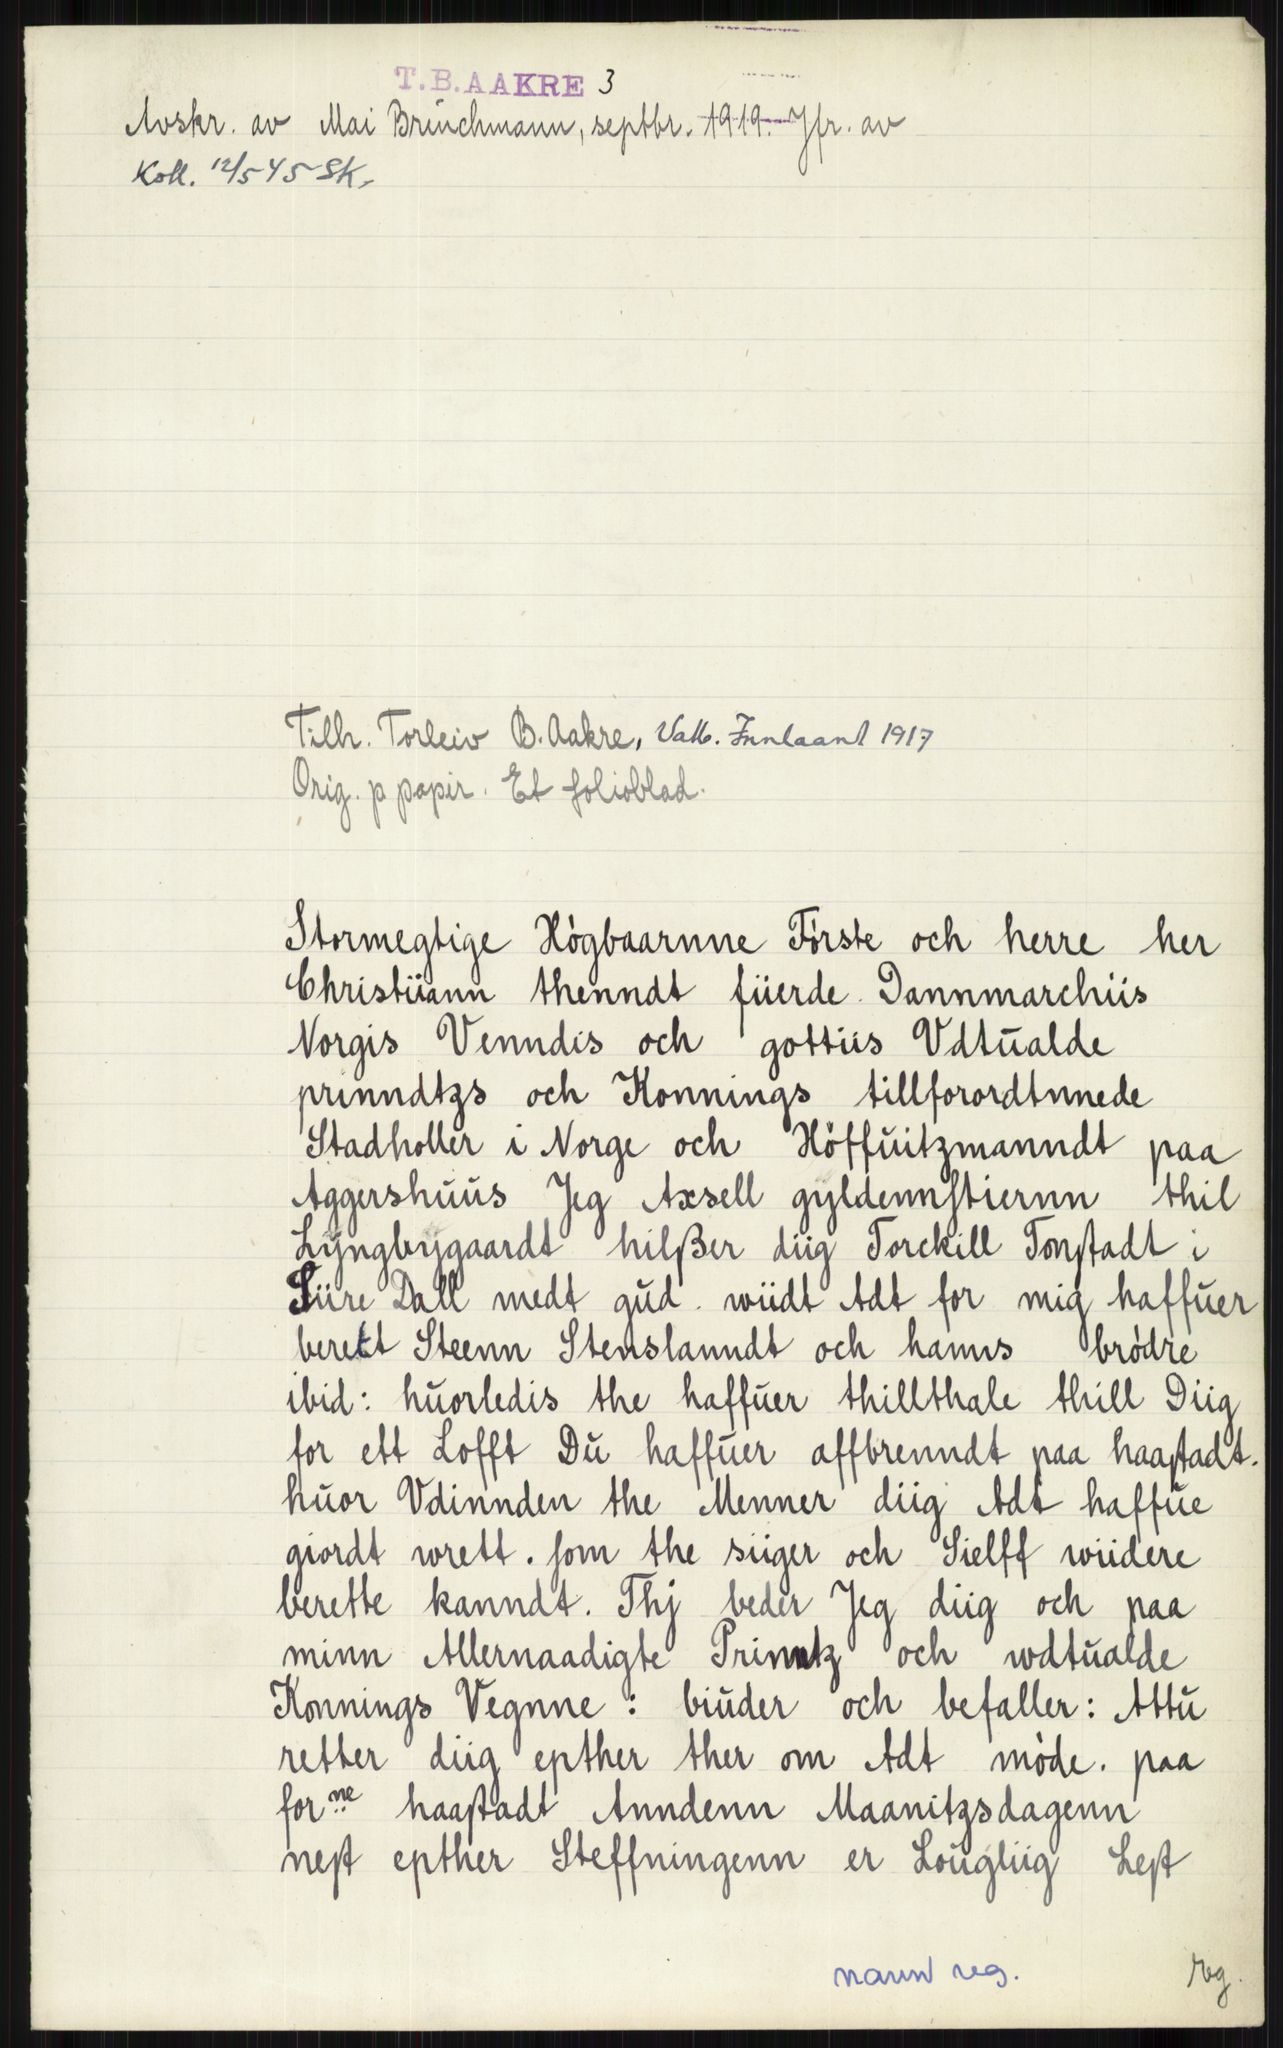 T.B.AAKRE 3
Avskr. av Mai Brüchmann, septbr. 1919. Jfr. av
Koll. 12/5 45 SK.
Tilh. Torleiv B. Aakre, Vall. Innlaant 1917
Orig. p papir. Et folioblad.
Stormegtige Högbaarnne Förste och herre her
Christiiann thenndt fiierde Dannmarchiis
Norgis Venndis och gottiis Vdtualde
prinndtzs och Konnings tillforordtnnede
Stadholler i Norge och Höffuitzmanndt paa
Aggershuus Jeg Axsell gyldennstiernn thil
Lyngbygaardt hilßer diig Torckill Tonstadt i
Siire Dall medt gud wiidt Adt for mig haffuer
berett Steenn Stenslanndt och hanns brödre
ibid: huorledis the haffuer thillthale thill Diig
for ett Lofft Du haffuer affbrenndt paa haastadt.
huor Vdinnden the Menner diig Adt haffue
giordt wrett. som the siiger och Sielff wiidere
berette kanndt. Thj beder Jeg diig och paa
minn Allernaadigte Prinntz och wdtualde
Konnings Vegnne: biuder och befaller: Attu
retter diig epther ther om Adt möde. paa
for^ne haastadt Anndenn Maanitzsdagenn
nest epther Steffningenn er Lougliig Lest
navne reg.
Rg.